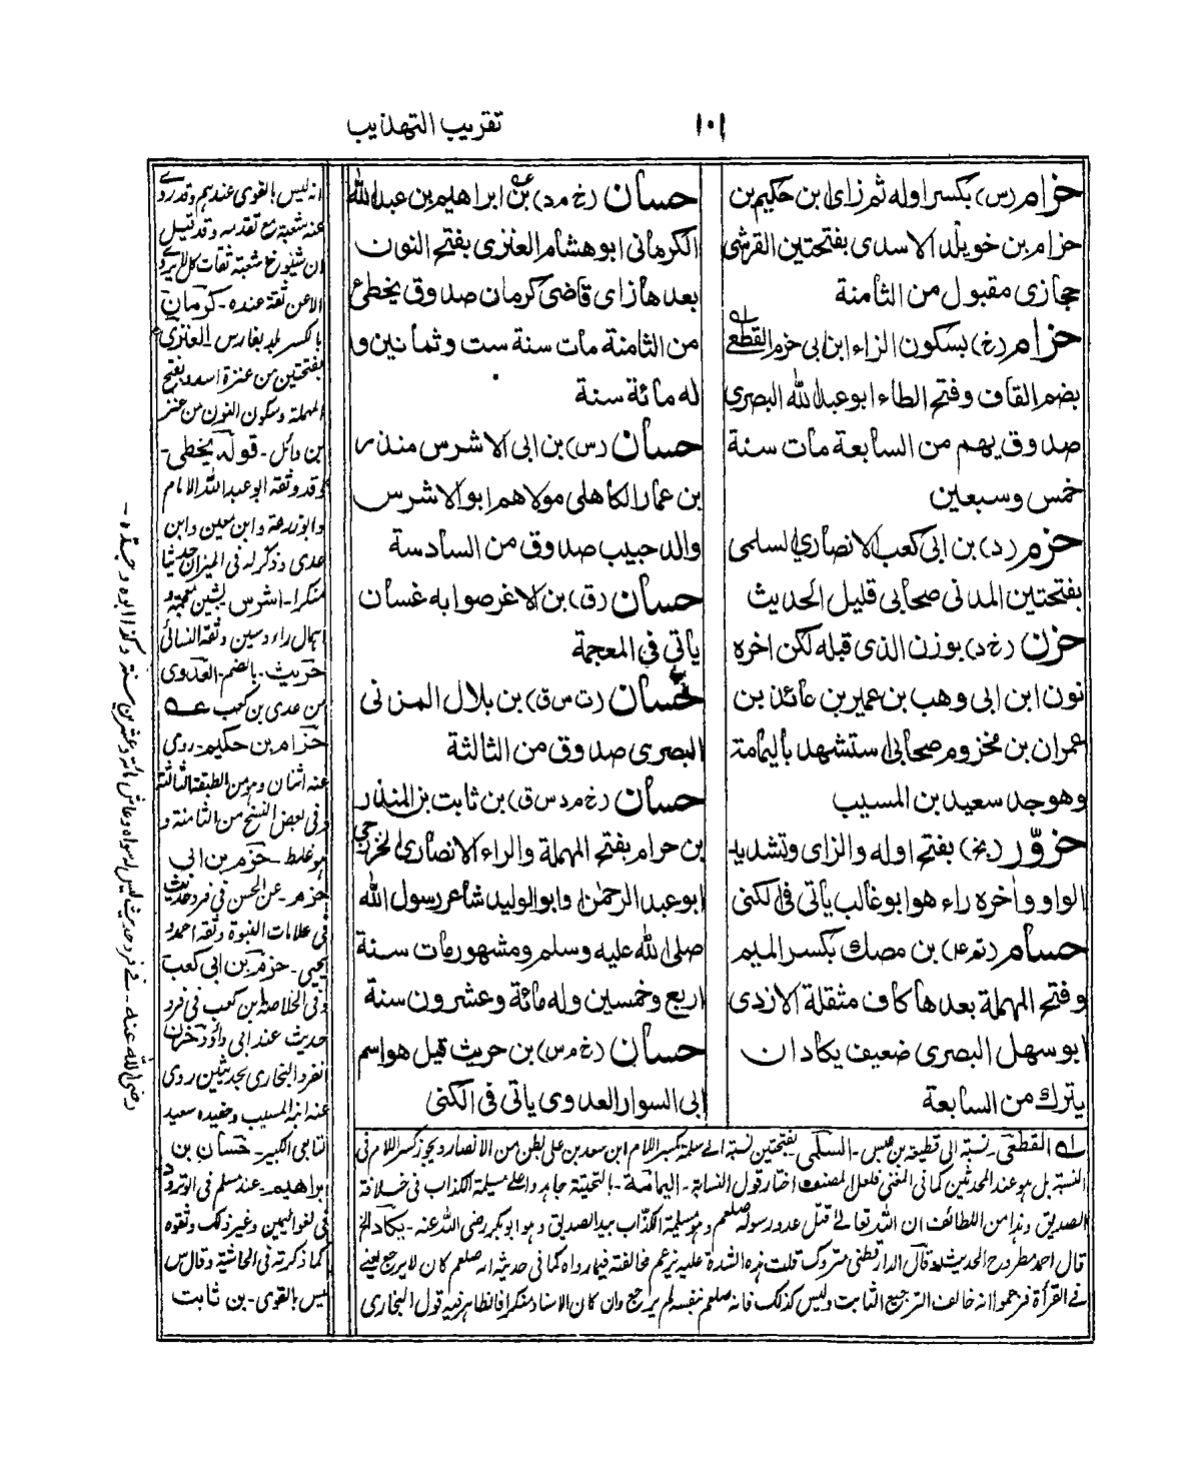 ١٠١
تقريب التهذيب
حزام (س) بكسر اوله ثم زاى ابن حكيم بن
حزام بن خويلد الاسدى بفتحتين القرشى
حجازى مقبول من الثامنة
حزام (خ) بسكون الزاء ابن ابى حزم القطعى
بضم القاف وفتح الطاء ابو عبد الله البصرى
صدوق يهم من السابعة مات سنة
خمس وسبعين
حزم (د) بن ابى كعب الانصارى السلمى
بفتحتين المدنى صحابى قليل الحديث
حزن (خ د) بوزن الذى قبله لكن اخره
نون ابن ابى وهب بن عمير بن عائذ بن
عمران بن مخزوم صحابى استشهد باليمامة
وهو جد سعيد بن المسيب
حزوّر (بخ) بفتح اوله والزاى وتشديد
الواو واخره راء هو ابو غالب يأتى فى الكنى
حسام (تم ق) بن مصك بكسر الميم
وفتح المهملة بعدها كاف مثقلة الازدى
ابو سهل البصرى ضعيف يكاد ان
يترك من السابعة
حسان (خ م د) بن ابراهيم بن عبد الله
الكرمانى ابو هشام العنزى بفتح النون
بعدها زاى قاضى كرمان صدوق يخطئ
من الثامنة مات سنة ست وثمانين و
له مائة سنة
حسان (س) بن ابى الاشرس منذر
بن عمار الكاهلى مولاهم ابو الاشرس
والد حبيب صدوق من السادسة
حسان (ق) بن الاغر صوابه غسان
يأتى فى المعجمة
حسان (ت س ق) بن بلال المزنى
البصرى صدوق من الثالثة
حسان (خ م د س ق) بن ثابت بن المنذر
بن حرام بفتح المهملة والراء الانصارى الخزرجى
ابو عبد الرحمن وابو الوليد شاعر رسول الله
صلى الله عليه وسلم ومشهور مات سنة
اربع وخمسين وله مائة وعشرون سنة
حسان (خ م س) بن حريث قيل هو اسم
ابى السوار العدوى يأتى فى الكنى
القطعى نسبة الى قطيعة بن عبس - السلمى بفتحتين نسبة الى سلمة بكسر اللام ابن سعد بن على بطن من الانصار ويجوز كسر اللام فى
النسبة بل هو عند المحدثين كما فى المغنى فلعل المصنف اختار قول النسابة - اليمامة - بالتحتية جاهدوا على مسيلمة الكذاب فى خلافة
الصديق وهذا من اللطائف ان الله تعالى قتل عدو رسوله صلعم وهو مسيلمة الكذاب بيد الصديق وهو ابو بكر رضى الله عنه - يكاد الخ
قال احمد مطروح الحديث قال الدارقطنى متروك قلت هذه الشدة عليه بزعم مخالفته فيما رواه كما فى حديثه انه صلعم كان لا يرجع يعنى
فى القرأة فزعموا انه خالف الترجيع الثابت وليس كذلك فانه صلعم بنفسه لم يرجع وان كان الاسناد منكرا فالظاهر فيه قول البخارى
انه ليس بالقوى عندهم وقد روى
عنه شعبة مع تقدمه وقد قيل
ان شيوخ شعبة ثقات كل لا يروى
الا عن ثقة عنده - كرمان
بالكسر بلد بفارس العنزى
بفتحتين من عنزة اسد وبفتح
المهملة وسكون النون من عنز
بن وائل - قوله يخطئ -
وقد وثقه ابو عبد الله الامام
وابو زرعة وابن معين وابن
عدى وذكر له فى الميزان حديثا
منكرا - اشرس بشين معجمة و
اهمال راء وسين وثقه النسائى
حريث - بالضم - العدوى
من عدى بن كعب
حزام بن حكيم - روى
عنه اثنان وهو من الطبقة الثالثة
وفى بعض النسخ من الثامنة و
هو غلط - حزم بن ابى
حزم - عن الحسن فى فرد حديث
فى علامات النبوة وثقه احمد و
يحيى - حزم بن ابى كعب
وفى الخلاصة ابن كعب فى فرد
حديث عند ابى داؤد حزن
انفرد البخارى بحديثين روى
عنه ابنه المسيب وحفيده سعيد
التابعى الكبير - حسان بن
ابراهيم - عند مسلم فى الوتر و
كما ذكرته فى الحاشية وقال س
ليس بالقوى - بن ثابت
رضى الله عنه - فى فرد حديث ليس له سواه وعاش مائة وعشرين سنة وكذا ابوه وجده -